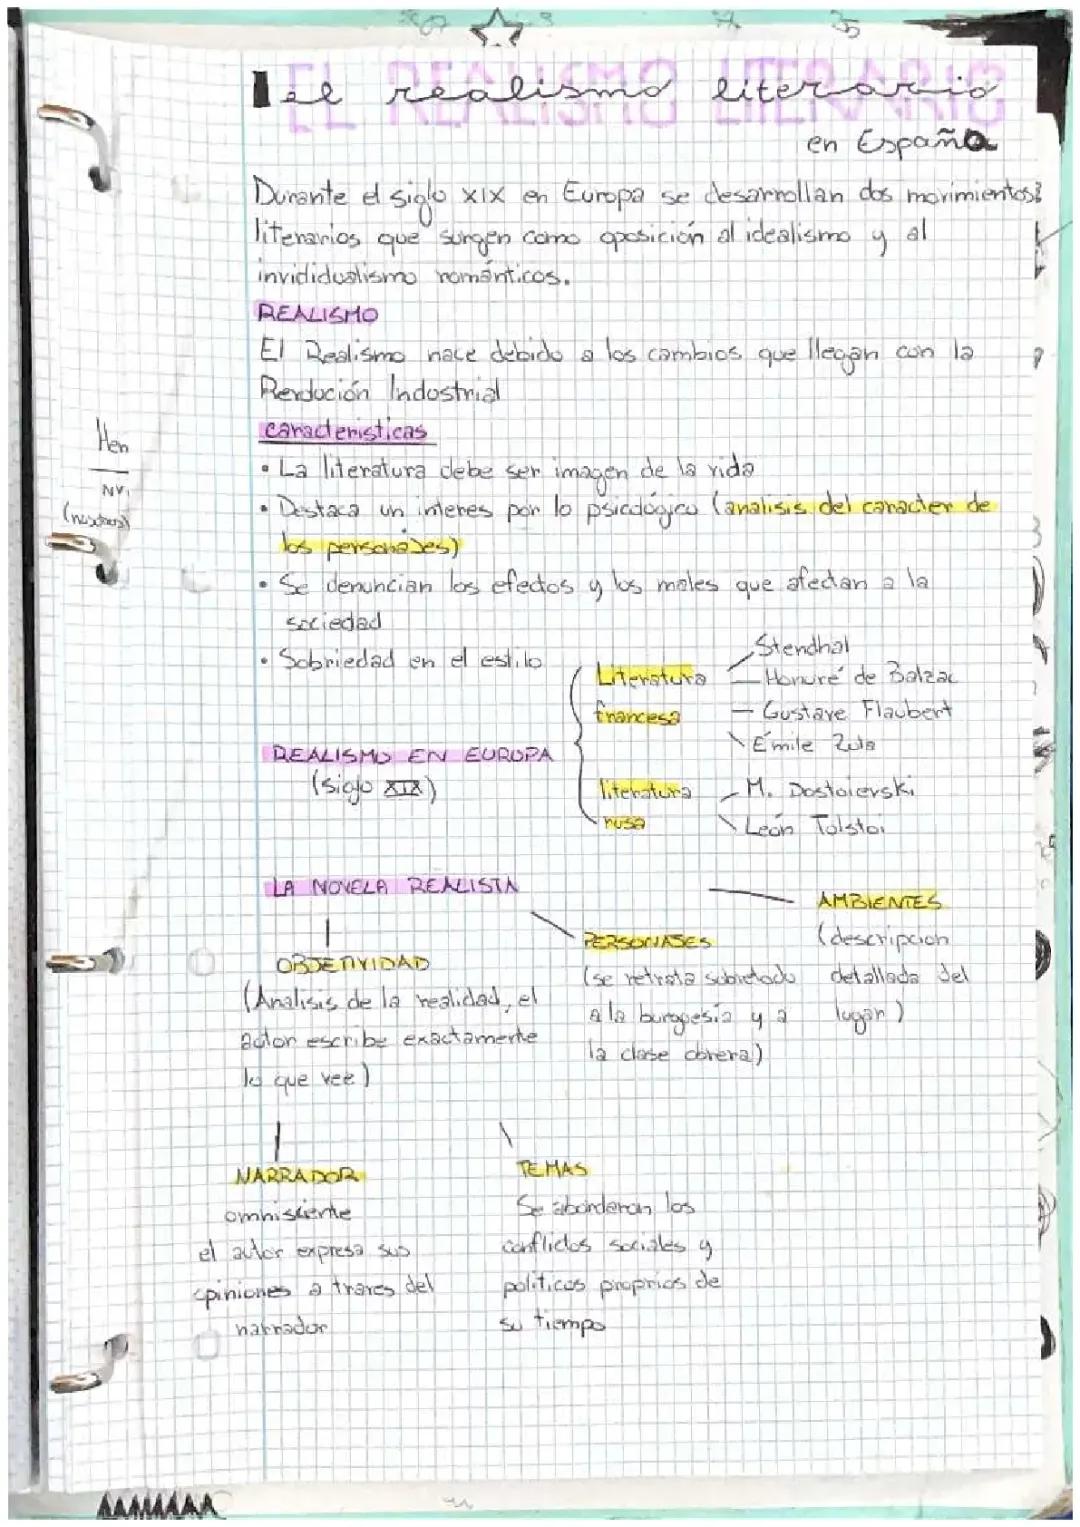 el realismo literario
EL REALISMO LITERARIO
en España
Durante el siglo XIX en Europa se desarrollan dos movimientos
literarios que surgen como oposición al idealismo y al
invididualismo románticos.
REALISMO
El Realismo nace debido a los cambios que llegan con la
Revolución Industrial
caracteristicas
• La literatura debe ser imagen de la vida
• Destaca un interes por lo psicológico (analisis del caracter de
los personajes)
• Se denuncian los efectos y los males que afectan a la
sociedad
• Sobriedad en el estilo
REALISMO EN EUROPA
(siglo XIX)
Literatura francesa
Stendhal
Honoré de Balzac
Gustave Flaubert
Émile Zola
literatura rusa
M. Dostoievski
León Tolstoi
LA NOVELA REALISTA
OBJETIVIDAD
(Analisis de la realidad, el
autor escribe exactamente
lo que vee)
PERSONAJES
(se retrata sobretodo
a la burgesía y a
la clase obrera)
AMBIENTES
(descripcion
detallada del
lugar)
NARRADOR
omnisciente
el autor expresa sus
opiniones a traves del
narrador
TEMAS
Se abordaran los
conflictos sociales y
politicos proprios de
su tiempo